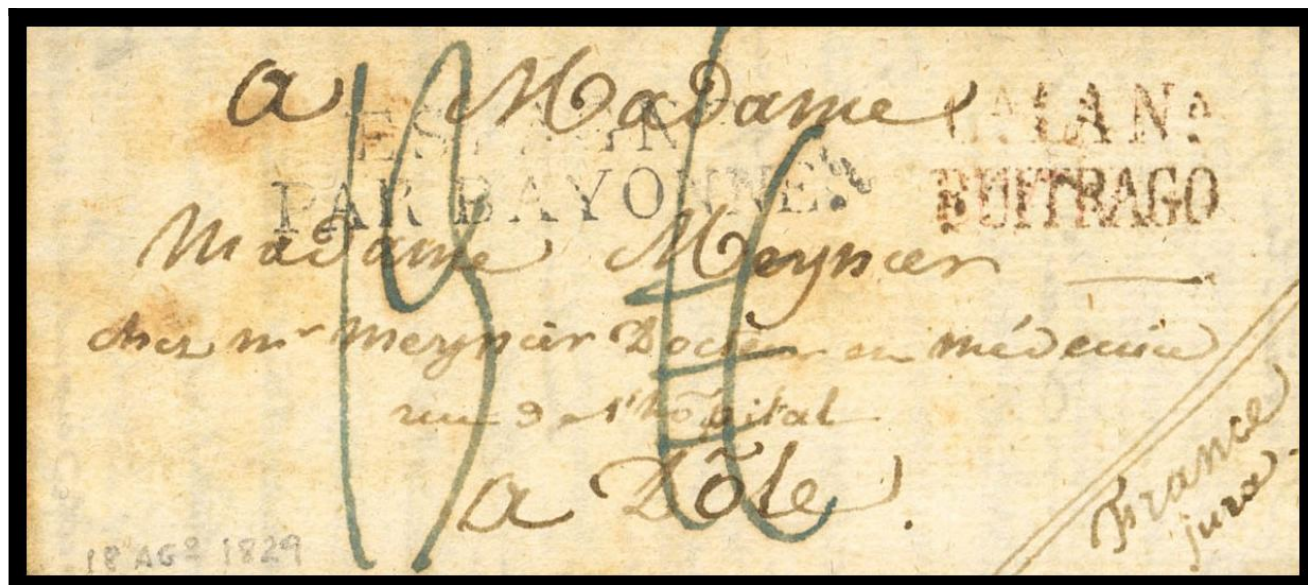 a Madame
ESPAGNE
PAR BAYONNE.
CªLANª
BUITRAGO
Madame Meynier
chez mr Meynier Docteur en médecine
rue de l'hôpital
a Dôle.
France
jura.
18 AGº 1829